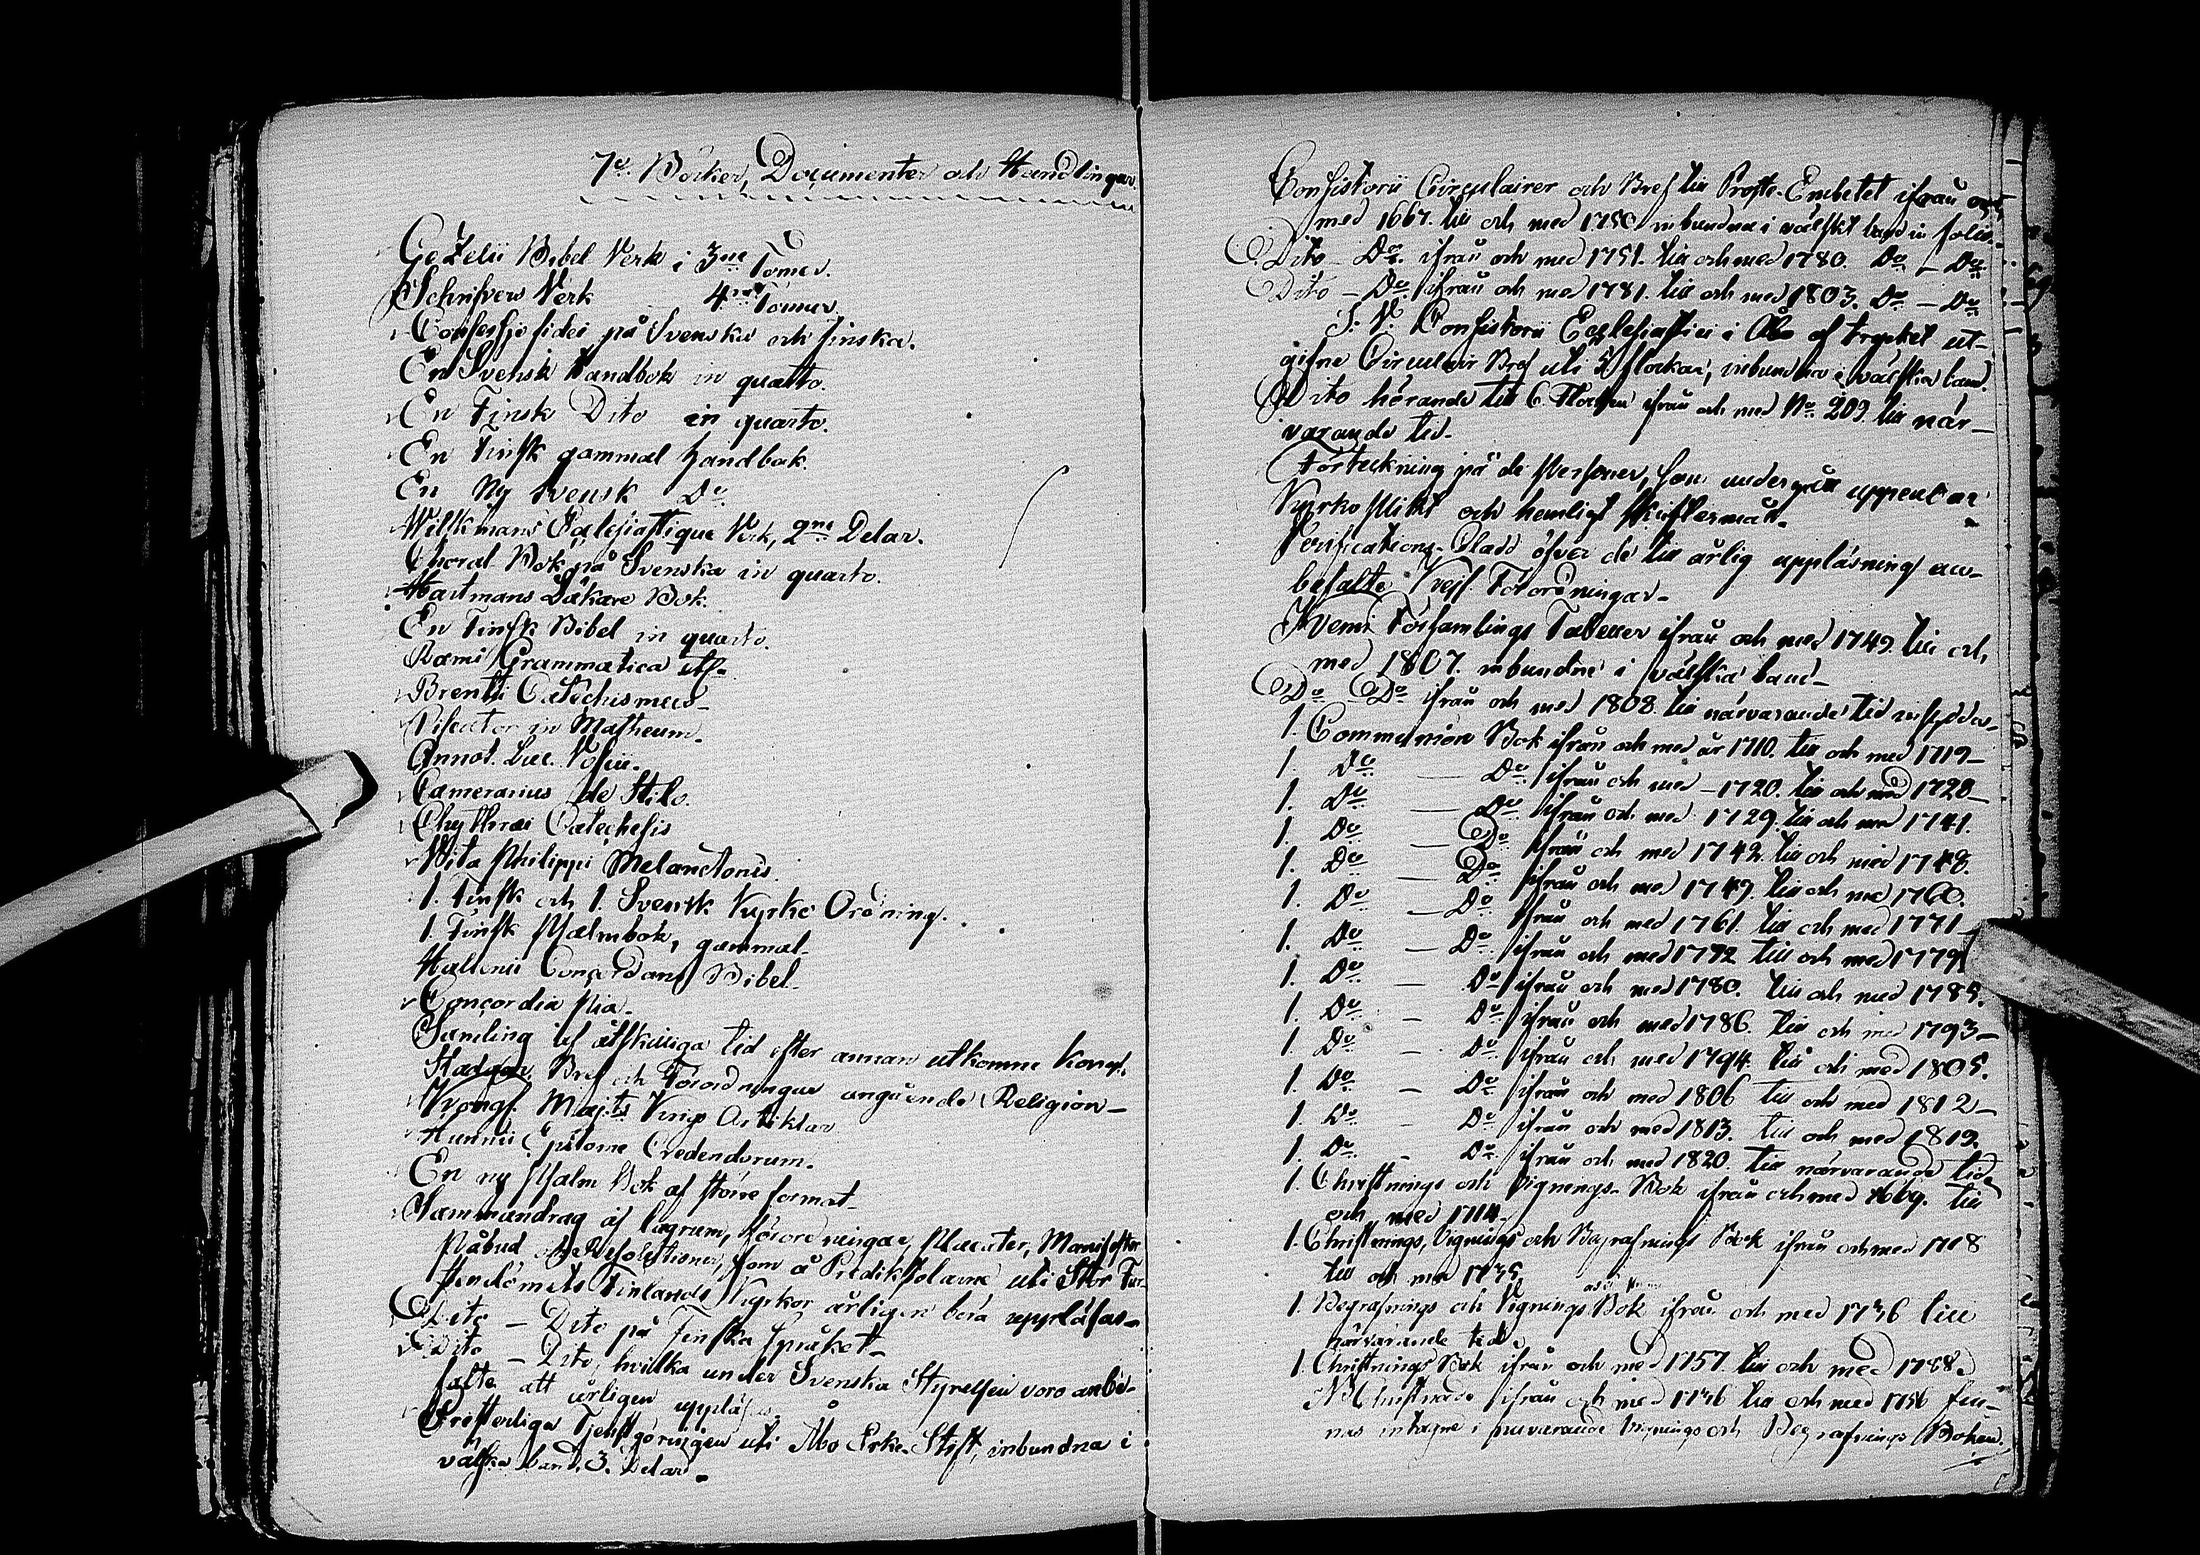 7o. Böcker, Documenter och Handlingar.
Gezelii Bibel Verk i 3ne Tomer.
Schrifvers Verk 4ra Tomer.
Confessio fidei på Svenska och finska.
En Svensk Handbok in quarto.
En Finsk Dito in quarto.
En Finsk gammal Handbok.
En Ny Svensk Do
Wilkmans Eclesiastique Verk, 2ne Delar.
Choral Bok på Svenska in quarto.
Hartmans Läkare Bok.
En Finsk Bibel in quarto.
Rami Grammatica
Brentii Catechismus
Piscator in Matheum.
Annot. Luc. Vossii.
Camerarius de Stilo.
Chythræi Catechesis
Vita Philippi Melanctonis.
1. Finsk och 1. Svensk Kyrko Ordning.
1. Finsk Psalmbok, gammal.
Hallenii Concordans Bibel.
Concordia Pia.
Samling af åtskilliga tid efter annan utkomne Kongl.
Stadgar, Bref och Förordningar angående Religion
Kongl. Maj:ts Krigs Artiklar
Hunnii Epitome Credendorum.
En ny Psalm Bok af större format
Sammandrag af lagrum, förordningar, Placater, Manifester
Påbud och Resolutioner, som å Predikstolarne uti Stor Fur-
stendömets Finlands Kyrkor årligen böra uppläsas.
Dito - Dito på Finska Språket
Dito - Dito, hvilka under Svenska Styrelsen voro anbe-
falte att årligen uppläsas
Presterliga Tjenstgöringen uti Åbo Erke-Stift, inbundna i
välska band, 3. Delar.
Consistorii Circulairer och Bref till Proste-Embetet ifrån och
med 1667. till och med 1750 inbundna i välskt band in folio.
Dito - Do. ifrån och med 1751. till och med 1780. Do - Do
Dito - Do. ifrån och med 1781. till och med 1803. Do - Do
S. V. Consistorii Ecclesiastici i Åbo af trycket ut-
gifne Circulair Bref uti 5 flockar, inbundna i välska band.
Dito hörande till 6 Flocken ifrån och med No. 209. till när-
varande tid.
Förteckning på de Personer, som undergått uppenbar
Kyrko Plikt och hemligt Skriftermål.
Verifications-Bladd öfver de till årlig uppläsning an-
befalte Förordningar.
Kemi Församlings Tabeller ifrån och med 1749. till och
med 1807. inbundne i välska band
Do - Do ifrån och med 1808. till närvarande tid
1. Communion Bok ifrån och med år 1710. till och med 1719
1. Do — Do. ifrån och med 1720. till och med 1728
1. Do — Do ifrån och med 1729. till och med 1741.
1. Do — Do ifrån och med 1742. till och med 1748.
1. Do — Do ifrån och med 1749. till och med 1760.
1. Do — Do ifrån och med 1761. till och med 1771
1. Do — Do ifrån och med 1772 till och med 1779
1. Do — Do ifrån och med 1780. till och med 1785.
1. Do — Do ifrån och med 1786. till och med 1793
1. Do — Do ifrån och med 1794. till och med 1805.
1. Do — Do ifrån och med 1806 till och med 1812
1. Do — Do ifrån och med 1813. till och med 1819.
1. Do - Do ifrån och med 1820. till närvarande tid
1. Christnings och Vignings-Bok ifrån och med 1669. till
och med 1714
1. Christnings, Vignings och Begrafnings Bok ifrån och med 1718
till och med 1735.
1. Begrafnings och Vignings Bok ifrån och med 1736 till
närvarande tid
1. Christnings Bok ifrån och med 1757. till och med 1788.
NB Christnade ifrån och med 1736 till och med 1756 fin-
nas intagne i Vignings och Begrafnings Boken.